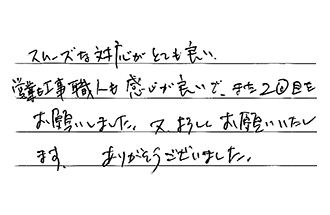 スムーズな対応がとても良い。
営業も工事職人も感じが良いで、また2回目を
お願いしました。又、よろしくお願いいたし
ます。 ありがとうございました。